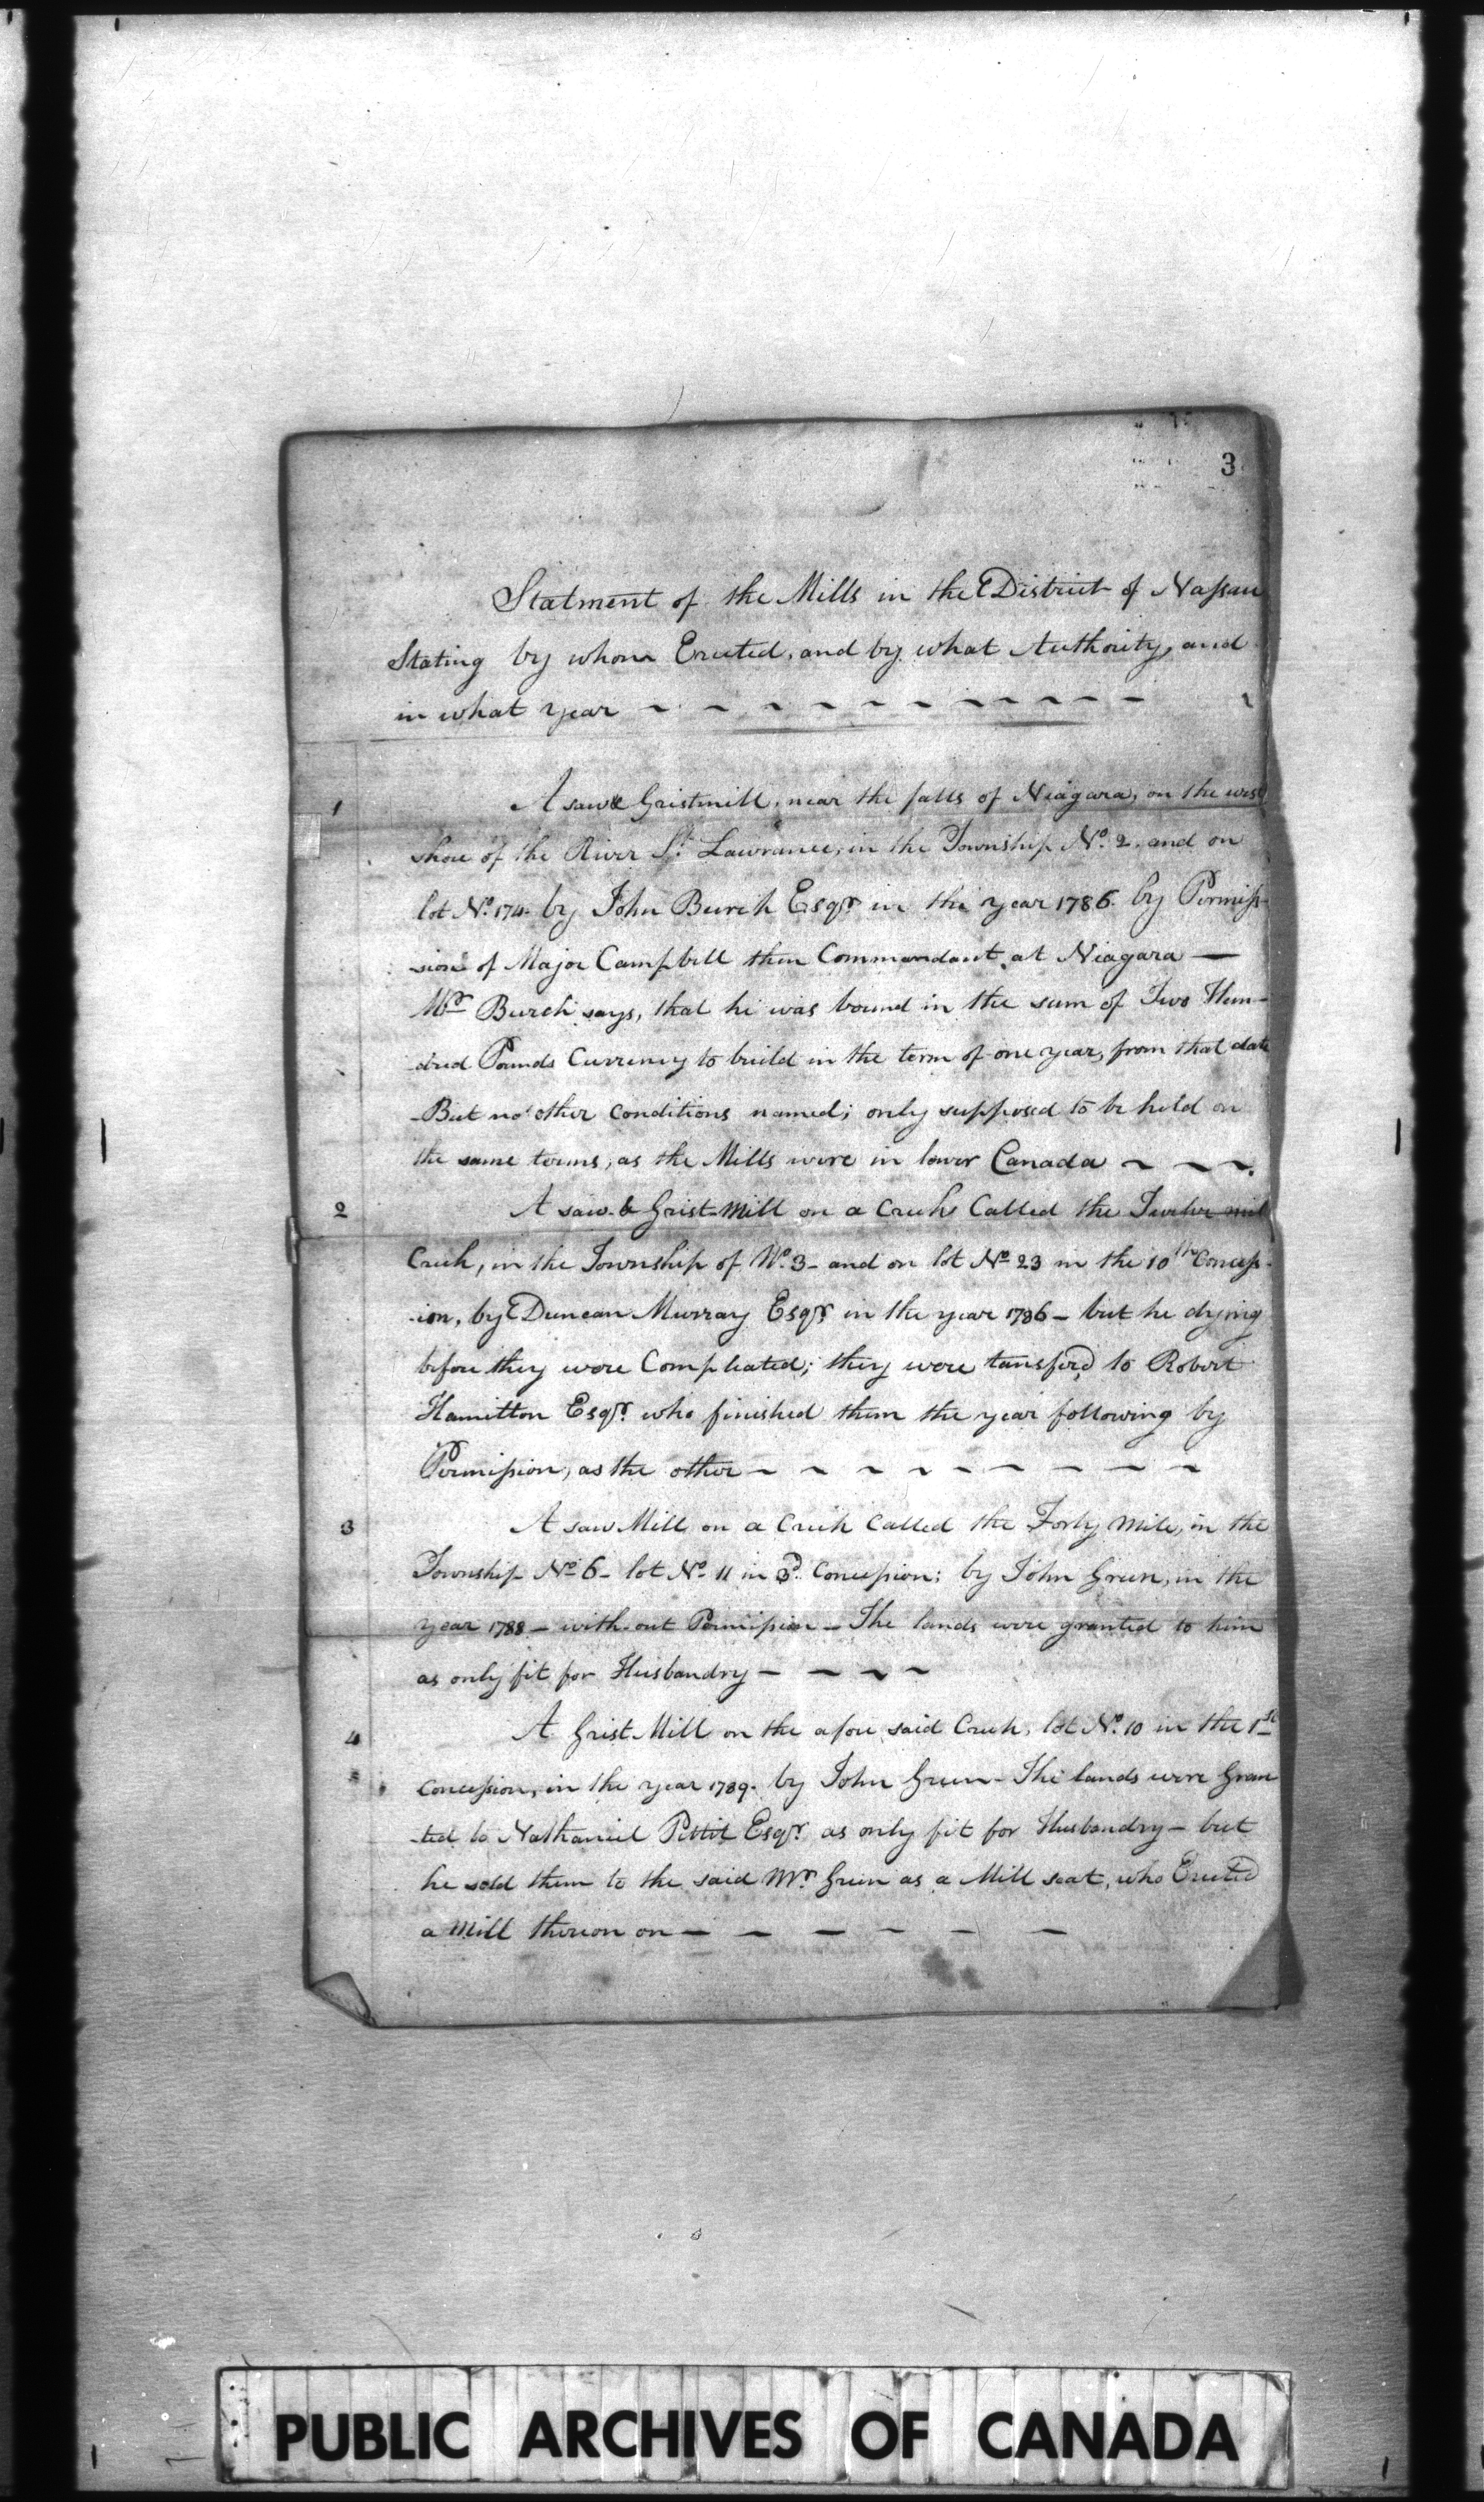 3
Statment of the Mills in the District of Nassau
Stating by whom Erected, and by what Authority, and
in what year
1 A saw & Gristmill, near the falls of Niagara, on the west
shore of the River St. Lawrance, in the Township No. 2. and on
lot No. 174. by John Burch Esqr. in the year 1786. by Permiss-
sion of Major Campbell then Commandant at Niagara —
Mr. Burch says, that he was bound in the sum of Two Hun-
dred Pounds Currency to build in the term of one year, from that date
- But no other conditions named; only supposed to be held on
the same terms, as the Mills were in lower Canada
2 A saw & Grist-Mill on a Creek Called the Twelve mile
Creek, in the Township of No. 3 - and on lot No. 23 in the 10th Concess-
ion, by Duncan Murray Esqr. in the year 1786 - but he dying
before they were Compleated; they were tansferd to Robert
Hamilton Esqr. who finished them the year following by
Permission, as the other
3 A saw Mill on a Creek Called the Forty Mile, in the
Township No. 6 - lot No. 11 in 3d. Concession; by John Green, in the
year 1788 - with-out Permission - The lands were granted to him
as only fit for Husbandry
4 A Grist Mill on the afore said Creek, lot No. 10 in the 1st
Concession, in the year 1789. by John Green - The lands were Gran
-ted to Nathaniel Pettit Esqr. as only fit for Husbandry - but
he sold them to the said Mr. Green as a Mill seat, who Erected
a Mill thereon on
PUBLIC ARCHIVES OF CANADA